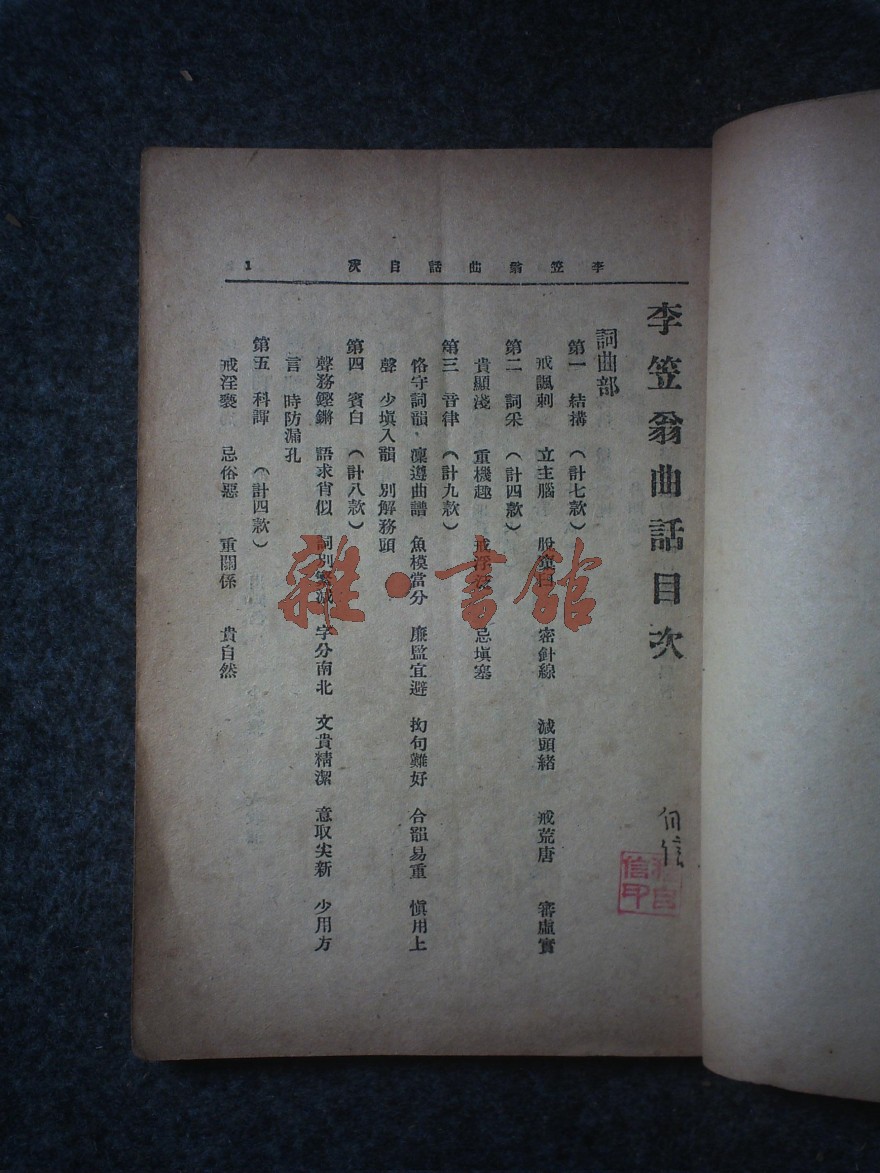 李笠翁曲話目次 1
李笠翁曲話目次
詞曲部
第一 結搆 （計七款）
戒諷刺 立主腦 脫窠臼 密針線 減頭緒 戒荒唐 審虛實
第二 詞采 （計四款）
貴顯淺 重機趣 戒浮泛 忌塡塞
第三 音律 （計九款）
恪守詞韻 凜遵曲譜 魚模當分 廉監宜避 拗句難好 合韻易重 愼用上
聲 少塡入韻 別解務頭
第四 賓白 （計八款）
聲務鏗鏘 語求肖似 詞別繁減 字分南北 文貴精潔 意取尖新 少用方
言 時防漏孔
第五 科諢 （計四款）
戒淫褻 忌俗惡 重關係 貴自然
雜·書館
自信
信印